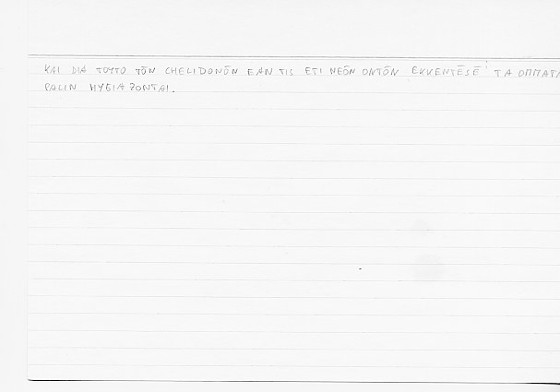 KAI DIA TOYTO TŌN CHELIDONŌN EAN TIS ETI NEŌN ONTŌN EKKENTĒSĒ TA OMMATA
PALIN HYGIAZONTAI.